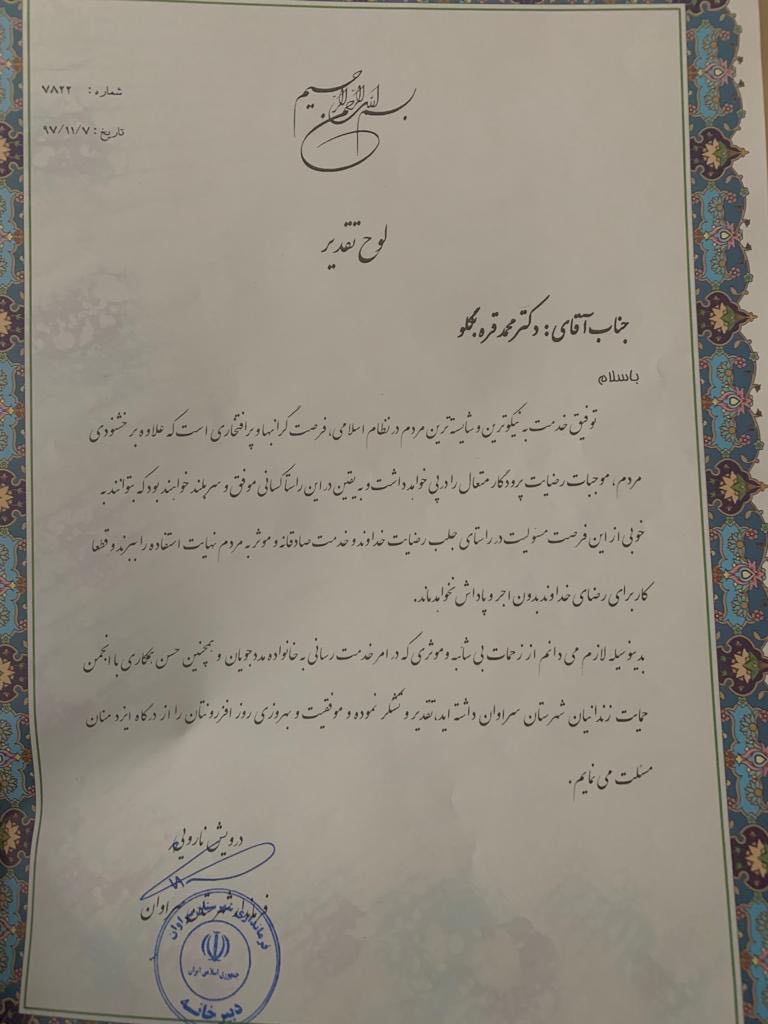 بسم الله الرحمن الرحیم
شماره : ۷۸۲۲
تاریخ : ۹۷/۱۱/۷
لوح تقدیر
جناب آقای : دکتر محمد قره بگلو
باسلام
توفیق خدمت به نیکوترین و شایسته ترین مردم در نظام اسلامی، فرصت گرانبها و پرافتخاری است که علاوه بر خشنودی
مردم، موجبات رضایت پرودگار متعال را در پی خواهد داشت و به یقین در این راستا کسانی موفق و سربلند خواهند بود که بتوانند به
خوبی از این فرصت مسئولیت در راستای جلب رضایت خداوند و خدمت صادقانه و موثر به مردم نهایت استفاده را ببرند و قطعا
کار برای رضای خداوند بدون اجر و پاداش نخواهد ماند.
بدینوسیله لازم می دانم از زحمات بی شائبه وموثری که در امر خدمت رسانی به خانواده مددجویان و همچنین حسن همکاری با انجمن
حمایت زندانیان شهرستان سراوان داشته اید،تقدیر و تشکر نموده و موفقیت و بهروزی روز افزرونتان را از درگاه ایزد منان
مسئلت می نمایم.
درویش نارویی
فرماندار شهرستان سراوان
فرمانداری شهرستان سراوان
جمهوری اسلامی ایران
دبیرخانه